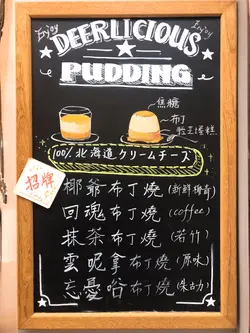 Enjoy
Enjoy
DEERLICIOUS
PUDDING
焦糖
布丁
100% 北海道 クリームチーズ
招牌
椰爺布丁燒(新鮮椰青)
回魂布丁燒(coffee)
抹茶布丁燒(若竹)
雲呢拿布丁燒(原味)
忘憂谷布丁燒(朱古力)